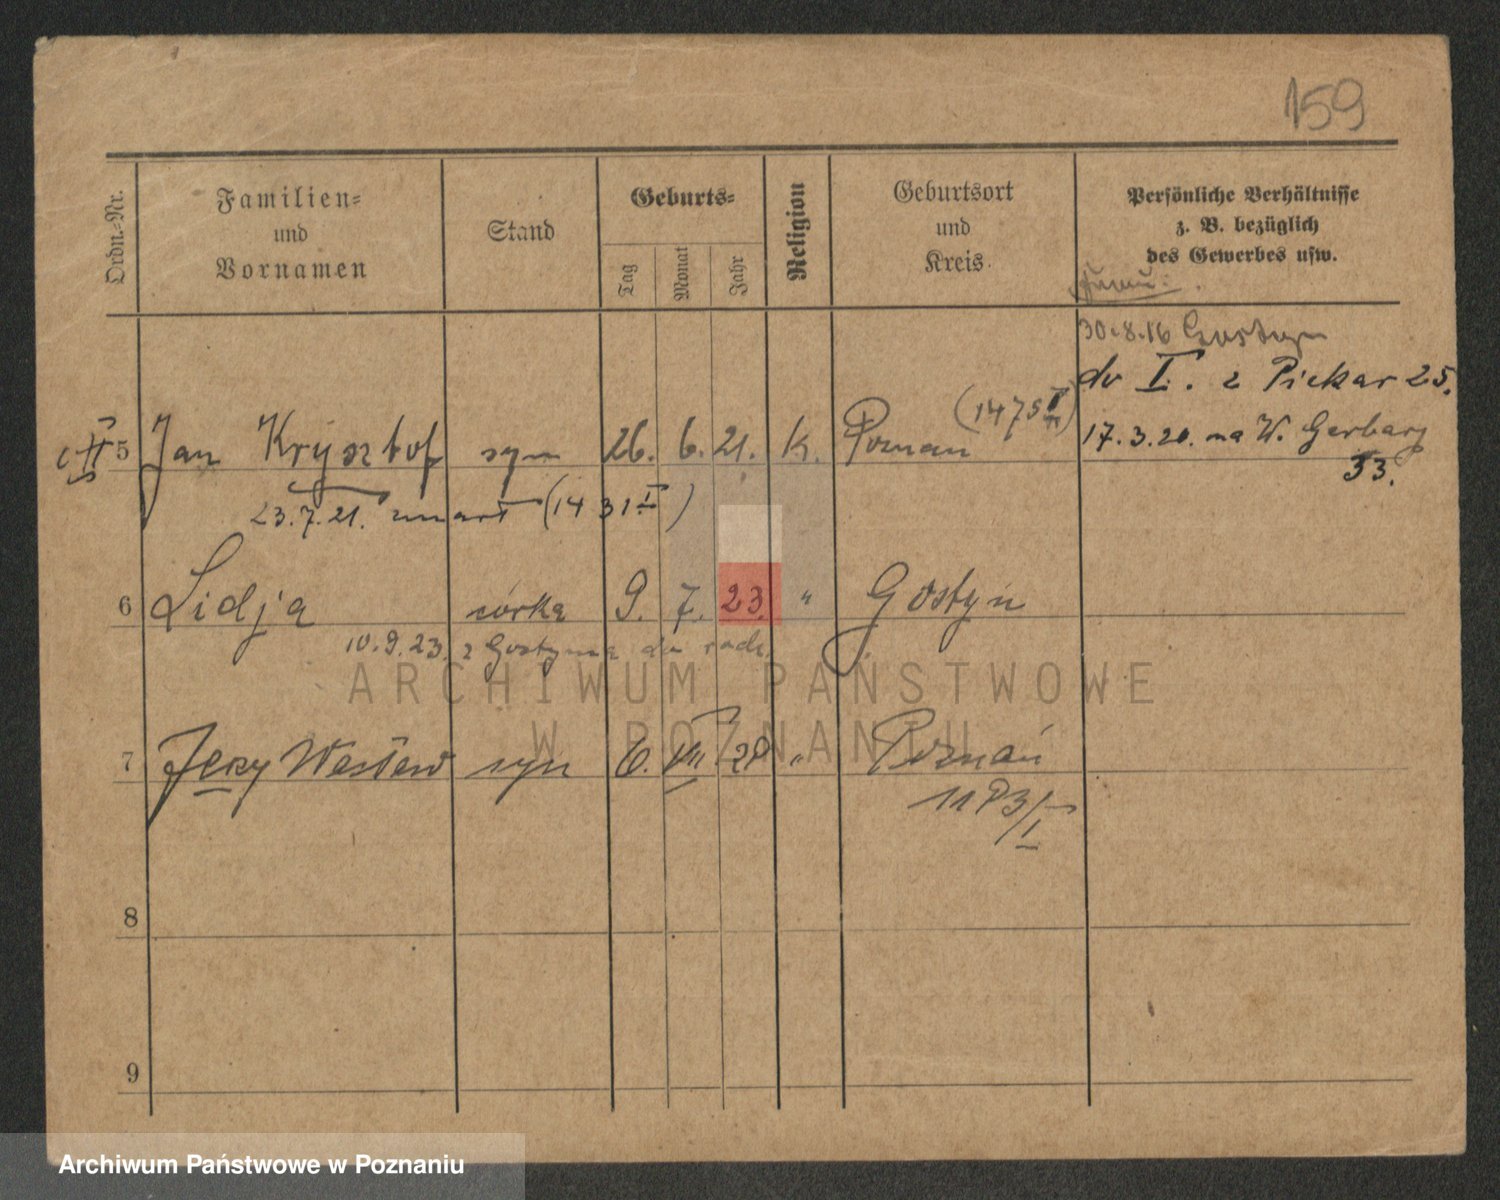 159
Ordn.-Nr.
Familien-
und
Vornamen
Stand
Geburts-
Tag
Monat
Jahr
Religion
Geburtsort
und
Kreis.
Persönliche Verhältnisse
z. B. bezüglich
des Gewerbes usw.
30.8.16 Gostyn
do I. z Piekar 25.
5 Jan Krysztof syn 26. 6. 21. k. Poznań (1475 17.3.20. na W. Garbary
33.
23.7.21. zmarł (1431 I)
6 Lidja córka 9. 7. 23. " Gostyń
10.9.23. z Gostynia do rodz.
7 Jerzy Wacław syn 6. VII 28 " Poznań
1183/I
8
9
ARCHIWUM PAŃSTWOWE
W POZNANIU
Archiwum Państwowe w Poznaniu